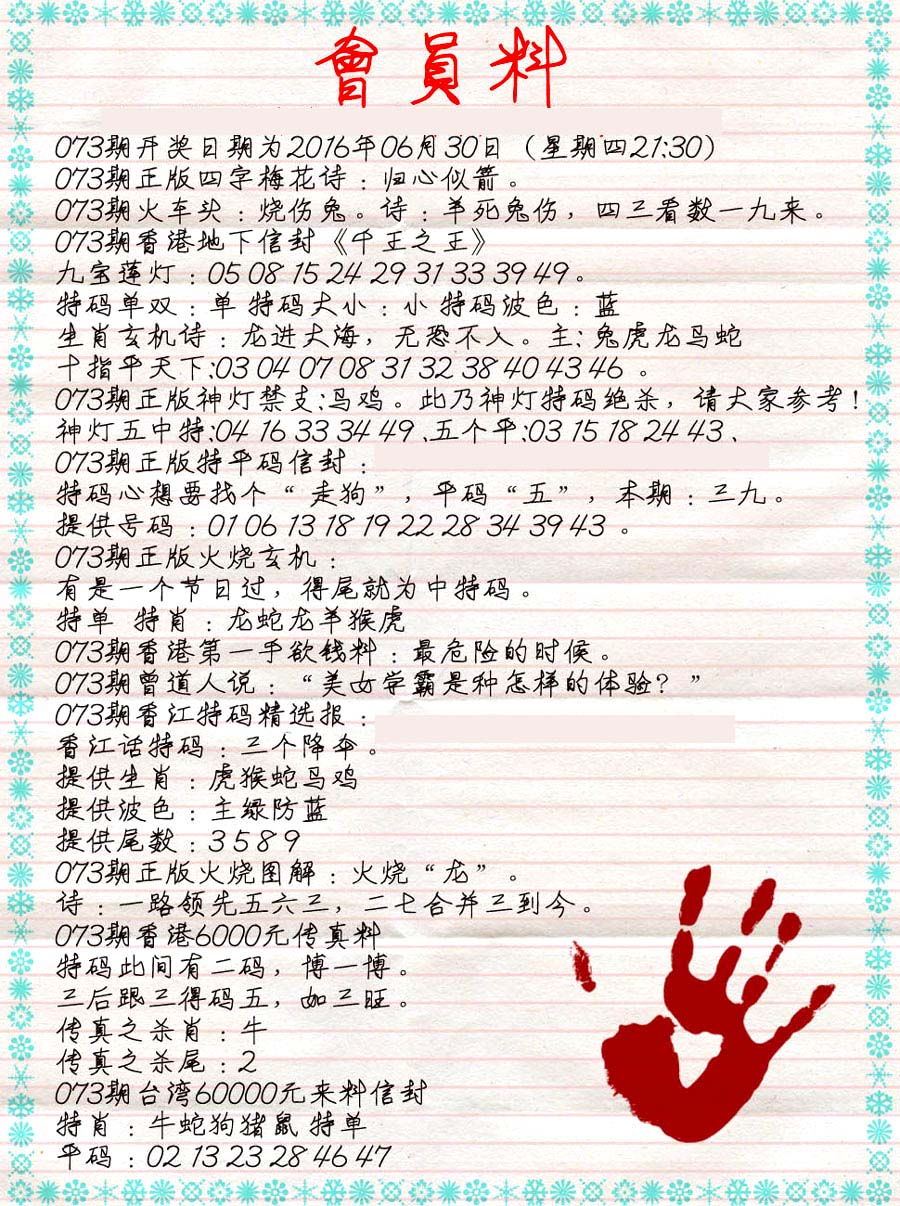 會員料
073期开奖日期为2016年06月30日（星期四21:30）
073期正版四字梅花诗：归心似箭。
073期火车头：烧伤兔。诗：羊死兔伤，四三看数一九来。
073期香港地下信封《千王之王》
九宝莲灯：05 08 15 24 29 31 33 39 49。
特码单双：单 特码大小：小 特码波色：蓝
生肖玄机诗：龙进大海，无恐不入。主：兔虎龙鸟蛇
十指平天下:03 04 07 08 31 32 38 40 43 46 。
073期正版神灯禁支:鸟鸡。此乃神灯特码绝杀，请大家参考！
神灯五中特:04 16 33 34 49 、五个平:03 15 18 24 43 、
073期正版特平码信封：
特码心想要找个“走狗”，平码“五”，本期：三九。
提供号码：01 06 13 18 19 22 28 34 39 43 。
073期正版火烧玄机：
有是一个节日过，得尾就为中特码。
特单 特肖：龙蛇龙羊猴虎
073期香港第一手欲钱料：最危险的时候。
073期曾道人说：“美女学霸是种怎样的体验？”
073期香江特码精选报：
香江话特码：三个降伞。
提供生肖：虎猴蛇鸟鸡
提供波色：主绿防蓝
提供尾数：3 5 8 9
073期正版火烧图解：火烧“龙”。
诗：一路领先五六三，二七合并三到今。
073期香港6000元传真料
特码此间有二码，博一博。
三后跟三得码五，如三旺。
传真之杀肖：牛
传真之杀尾：2
073期台湾60000元来料信封
特肖：牛蛇狗猪鼠 特单
平码：02 13 23 28 46 47